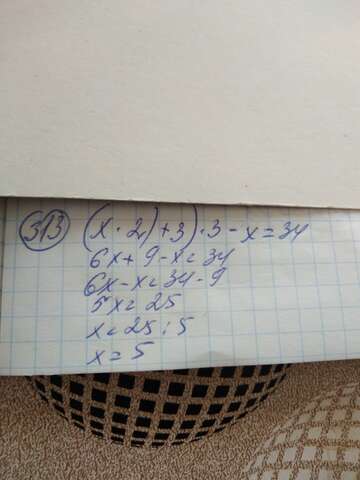 313 (x · 2) + 3) · 3 - x = 34
6x + 9 - x = 34
6x - x = 34 - 9
5x = 25
x = 25 : 5
x = 5